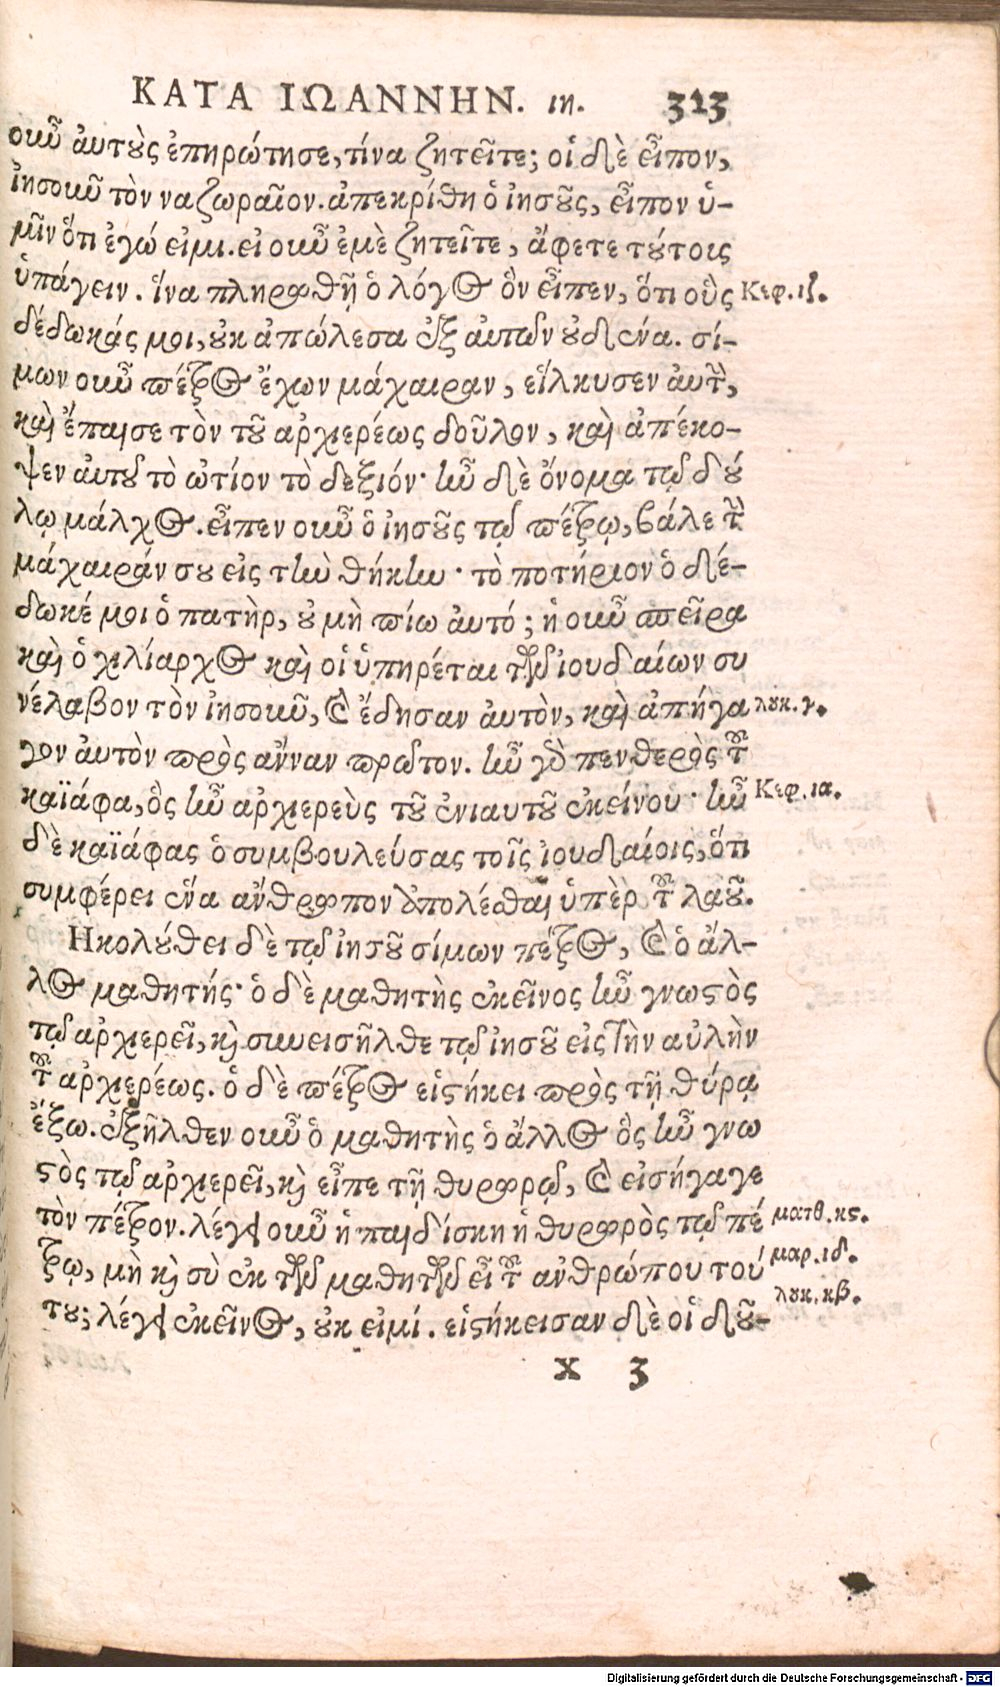 ΚΑΤΑ ΙΩΑΝΝΗΝ. ιη. 323
οιυῦ ἀυτοὺς ἐπηρώτησε, τίνα ζητεῖτε; οἱ δὲ εἶπον,
ἰησοιυῦ τὸν ναζωραῖον. ἀπεκρίθη ὁ ἰησοῦς, εἶπον ὑ-
μῖν ὅτι ἐγώ εἰμι. εἰ οιυῦ ἐμὲ ζητεῖτε, ἄφετε τούτοις
ὑπάγειν. ἵνα πληρωθῇ ὁ λόγος ὃν εἶπεν, ὅτι οὓς
Κεφ. ιζ.
δέδωκάς μοι, οὐκ ἀπώλεσα ἐξ αὐτῶν οὐδένα. σί-
μων οιυῦ πέτρος ἔχων μάχαιραν, εἵλκυσεν ἀυτὴν,
καὶ ἔπαισε τὸν τοῦ ἀρχιερέως δοῦλον, καὶ ἀπέκο-
ψεν ἀυτοῦ τὸ ὠτίον τὸ δεξιόν· ἦν δὲ ὄνομα τῷ δού
λῳ μάλχος. εἶπεν οιυῦ ὁ ἰησοῦς τῷ πέτρῳ, βάλε τὴν
μάχαιράν σου εἰς τὴν θήκην· τὸ ποτήριον ὃ δέ-
δωκέ μοι ὁ πατὴρ, οὐ μὴ πίω ἀυτό; ἡ οιυῦ σπεῖρα
καὶ ὁ χιλίαρχος καὶ οἱ ὑπηρέται τῶν ἰουδαίων συ
νέλαβον τὸν ἰησοιυῦ, καὶ ἔδησαν ἀυτὸν, καὶ ἀπήγα
λουκ. γ.
γον ἀυτὸν πρὸς ἄνναν πρῶτον. ἦν γὰρ πενθερὸς τοῦ
καϊάφα, ὃς ἦν ἀρχιερεὺς τοῦ ἐνιαυτοῦ ἐκείνου· ἦν
Κεφ. ια.
δὲ καϊάφας ὁ συμβουλεύσας τοῖς ἰουδαίοις, ὅτι
συμφέρει ἕνα ἄνθρωπον ἀπολέσθαι ὑπὲρ τοῦ λαοῦ.
Ηκολούθει δὲ τῷ ἰησοῦ σίμων πέτρος, καὶ ὁ ἄλ-
λος μαθητής· ὁ δὲ μαθητὴς ἐκεῖνος ἦν γνωστὸς
τῷ ἀρχιερεῖ, καὶ συνεισῆλθε τῷ ἰησοῦ εἰς τὴν αὐλὴν
τοῦ ἀρχιερέως. ὁ δὲ πέτρος εἱστήκει πρὸς τῇ θύρᾳ
ἔξω. ἐξῆλθεν οιυῦ ὁ μαθητὴς ὁ ἄλλος ὃς ἦν γνω
στὸς τῷ ἀρχιερεῖ, καὶ εἶπε τῇ θυρωρῷ, καὶ εἰσήγαγε
τὸν πέτρον. λέγει οιυῦ ἡ παιδίσκη ἡ θυρωρὸς τῷ πέ
ματθ. κς.
τρῳ, μὴ καὶ σὺ ἐκ τῶν μαθητῶν εἶ τοῦ ἀνθρώπου τού
μαρ. ιδ.
λουκ. κβ.
του; λέγει ἐκεῖνος, οὐκ εἰμί. εἱστήκεισαν δὲ οἱ δοῦ-
X 3
Digitalisierung gefördert durch die Deutsche Forschungsgemeinschaft - DFG